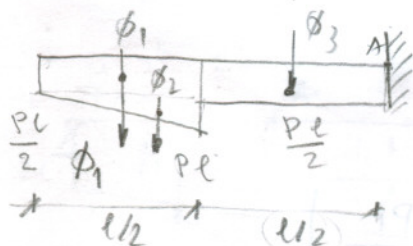 ϕ₁ ϕ₃ A
ϕ₂
Pl/2 ϕ₁ Pl Pl/2
l/2 (l/2)